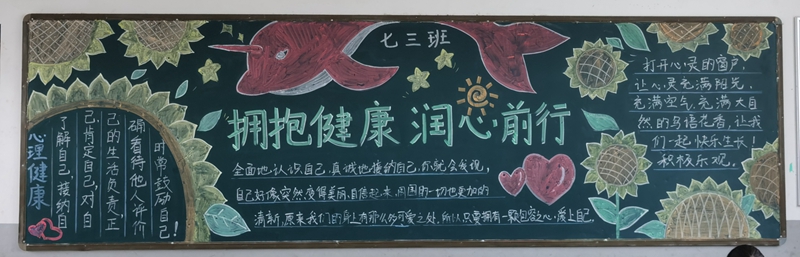 七三班
拥抱健康 润心前行
心理健康
了解自己,接纳自
己,肯定自己,对自
己的生活负责,正
确看待他人评价
时常鼓励自己!
全面地认识自己,真诚地接纳自己,你就会发现,
自己好像突然变得美丽自信起来,周围的一切也更加的
清新,原来我们的身上有那么多可爱之处,所以,只要拥有一颗包容之心,爱上自己.
打开心灵的窗户,
让心灵充满阳光,
充满空气,充满大自
然的鸟语花香,让我
们一起,快乐生长!
积极乐观.